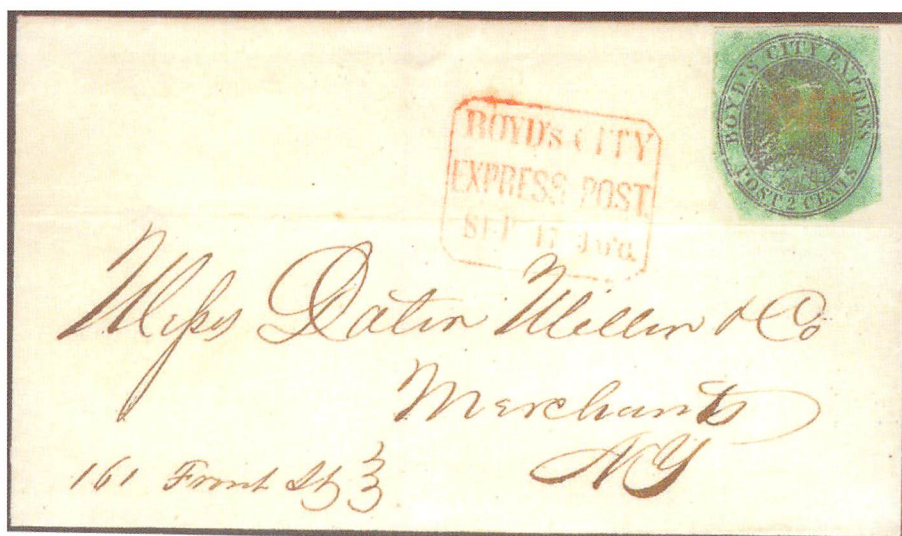 BOYD'S CITY EXPRESS
POST 2 CENTS
BOYD'S CITY
EXPRESS POST.
SEP 17
Messs Dater Miller & Co
Merchants
NY
161 Front St